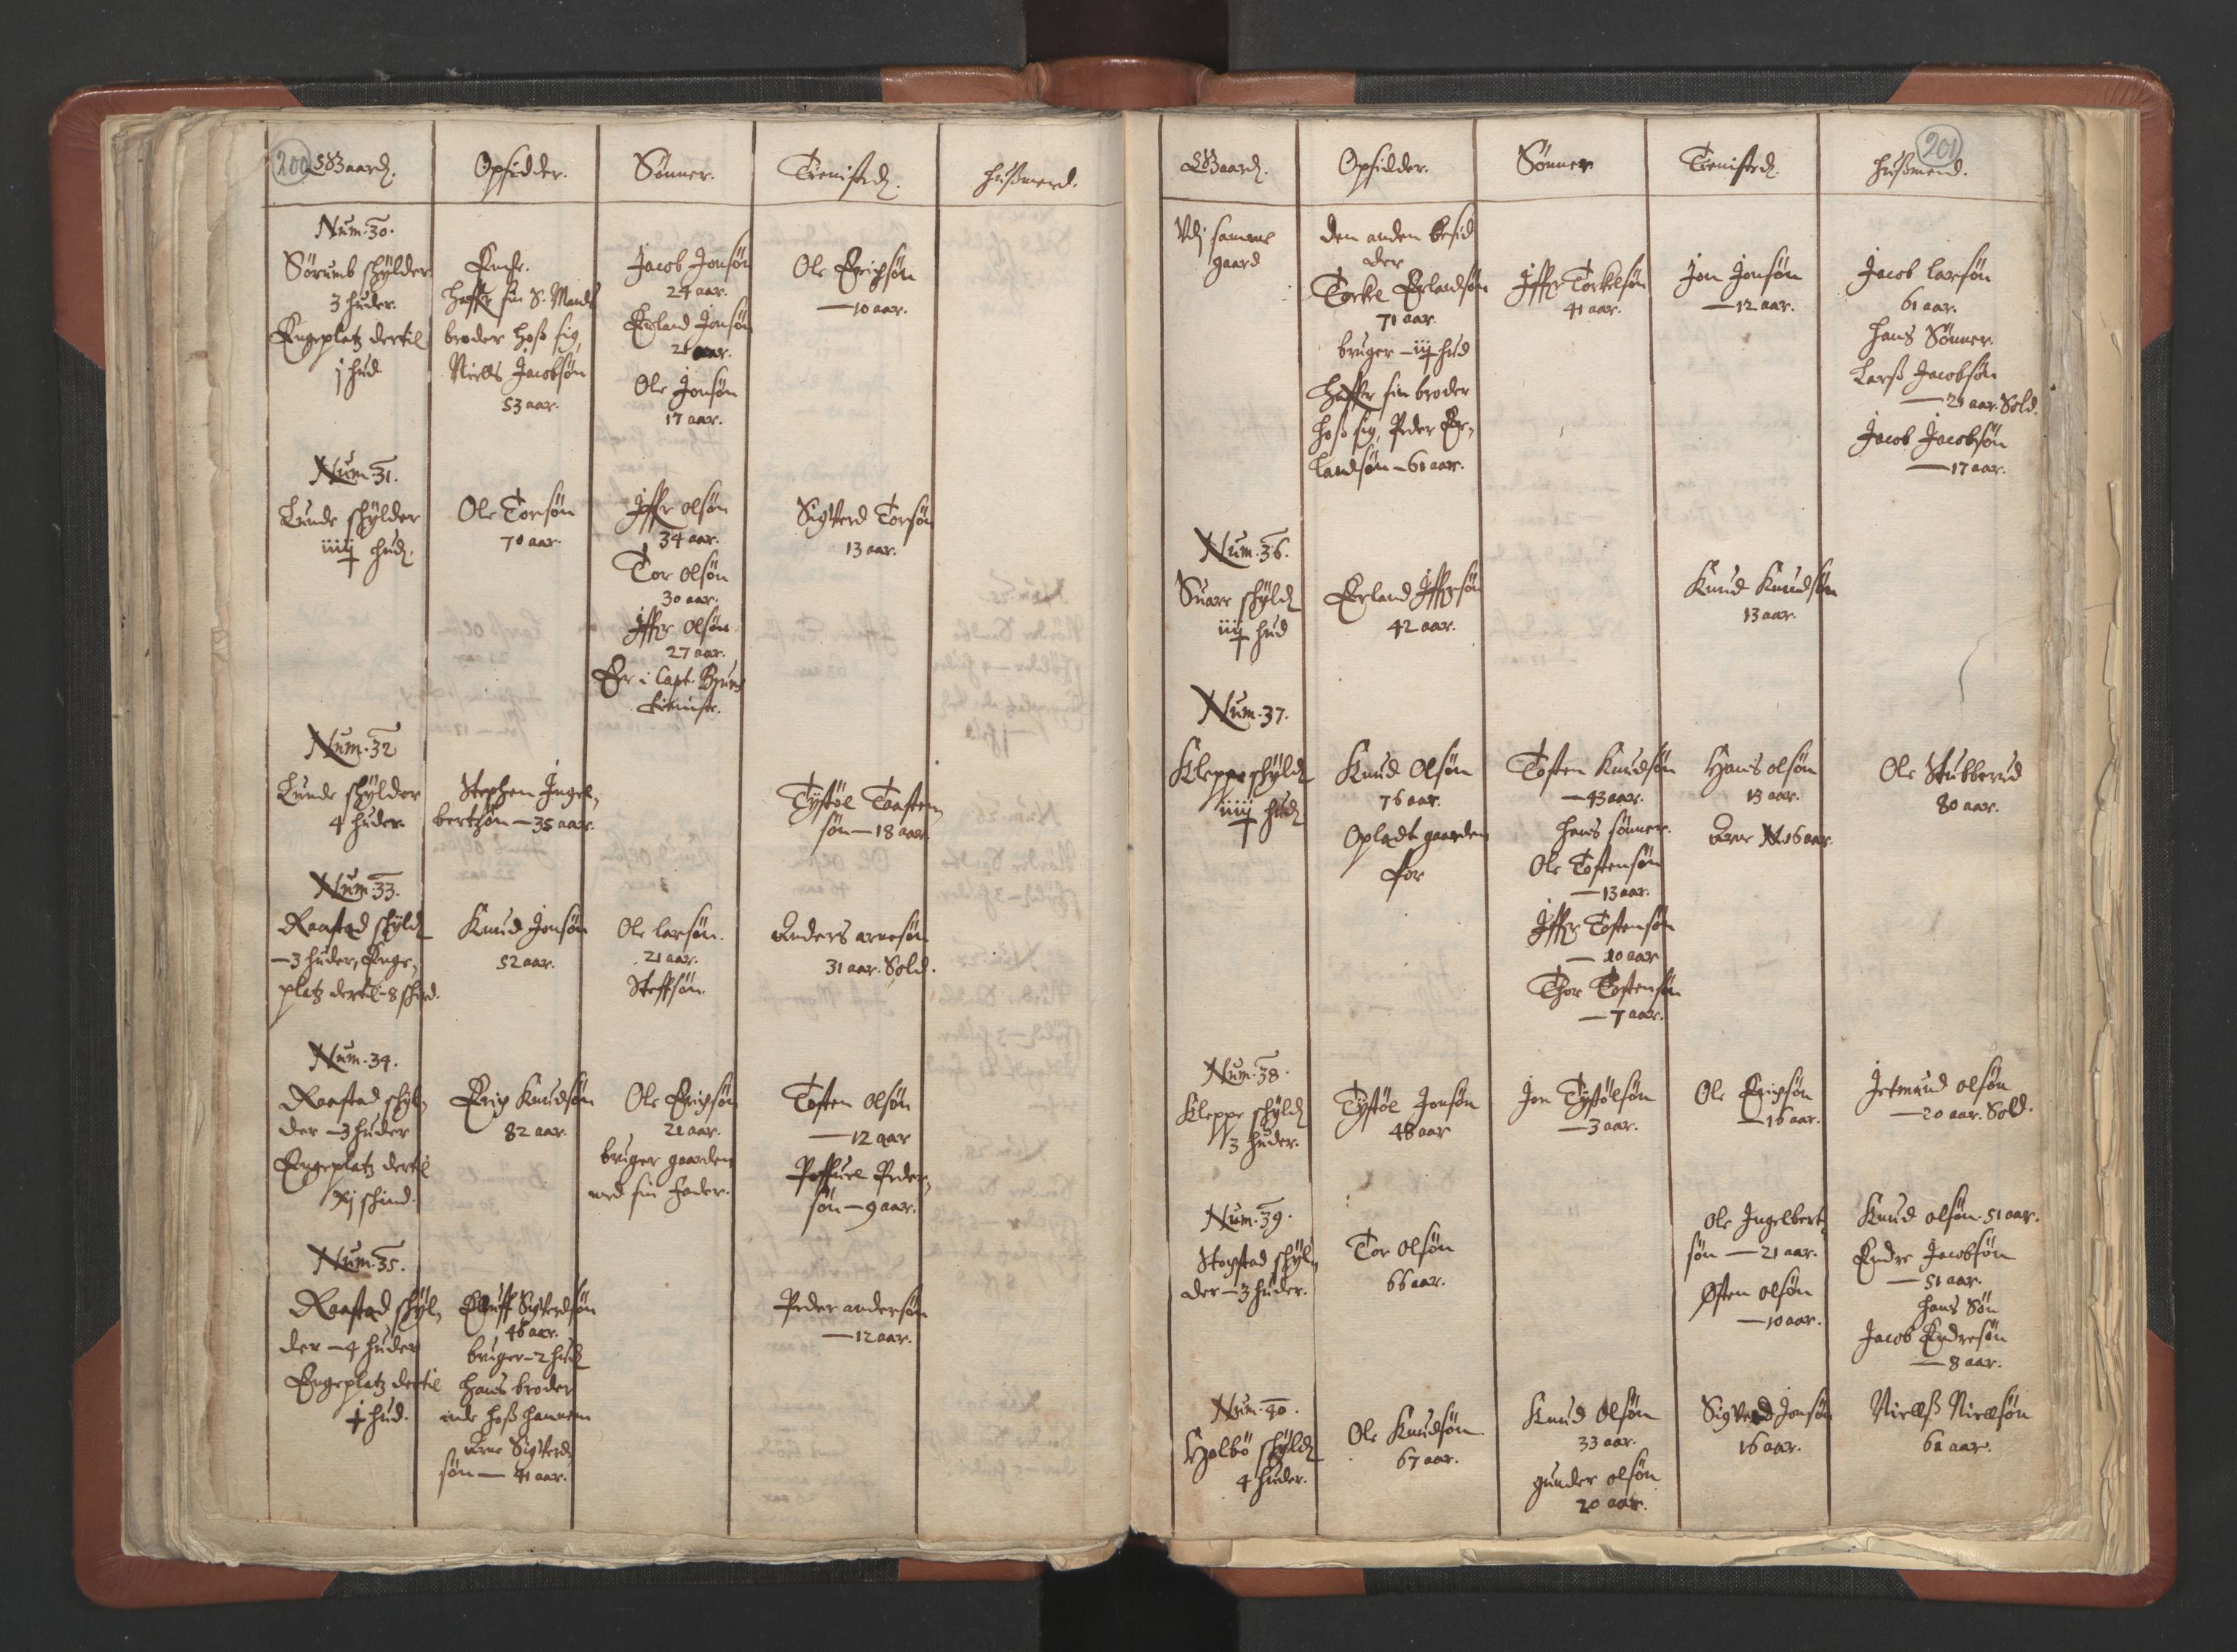 200 Gaard. Opsidder. Sønner. Tienistd. Hußmend.
Num. 30.
Sørumb schylder
3 huder.
Engeplatz dertil
j hud
Enche.
Haffr sin S. Mands
broder hoß sig,
Niels Jacobsøn
53 aar.
Jacob Jonsøn
24 aar.
Erland Jonsøn
aar.
Ole Jonsøn
17 aar.
Ole Erichsøn
— 10 aar.
Num. 31.
Lunde schylder
iiij hud.
Ole Torsøn
70 aar.
Iffr olsøn
34 aar.
Tor olsøn
30 aar.
Iffr olsøn
27 aar.
Er i Capt.
tieniste.
Sigverd Torsøn
13 aar.
Num. 32
Lunde schylder
4 huder.
Stephen Ingel,
bertsøn — 35 aar.
Tystøl Taasten,
søn — 18 aar.
Num. 33.
Raastad schyld
— 3 huder, Enge,
platz dertil - 8 schind.
Knud Jonsøn
52 aar.
Ole larsøn.
21 aar.
Steffsøn.
Anders arnesøn
31 aar. Sold.
Num. 34.
Raastad schyl,
der — 3 huder
Engeplatz dertil
xj schind.
Erich Knudsøn
82 aar.
Ole Erichsøn
21 aar.
bruger gaarden
med sin Fader.
Tosten olsøn
— 12 aar
Poffuel Peder,
søn — 9 aar.
Num. 35.
Raastad schyl,
der — 4 huder
Engeplatz dertil
j hud.
Elluff Sigverdsøn
46 aar.
bruger - 2 hud
Hans broder
inde hoß hannem
Arne Sigverd
søn — 41 aar.
Peder andersøn
— 12 aar.
201
Gaard. Opsidder. Sønner Tienistd. Hußmend.
Vdj samme
gaard
den anden besid
der
Torkel Erlandsøn
71 aar.
bruger — iij hud
Haffer sin broder
hoß sig, Peder Er,
landsøn — 61 aar.
Iffr Torkelsøn
41 aar.
Jon Jonsøn
— 12 aar.
Jacob larsøn
61 aar.
hans Sønner.
Larß Jacobsøn
— 21 aar. Sold.
Jacob Jacobsøn
— 17 aar.
Num. 36.
Suare schyld
iiij hud
Erland Iffersøn
42 aar.
Knud Knudsøn
13 aar.
Num. 37.
Kleppe schyld
iiij hud
Knud Olsøn
76 aar.
Opladt gaarden
for
Tosten Knudsøn
— 43 aar.
hans sønner.
Ole Tostensøn
— 13 aar.
Iffr Tostensøn
— 10 aar
Thor Tostensøn
— 7 aar.
Hans olsøn
13 aar.
Arne N. 16 aar.
Ole Stubberud
80 aar.
Num. 38.
Kleppe schyld
3 huder.
Tystøl Jonsøn
48 aar
Jon Tystølsøn
— 3 aar.
Ole Erichsøn
— 16 aar.
Jetmund olsøn
— 20 aar. Sold.
Num. 39.
schyl,
der — 3 huder.
Tor olsøn
66 aar.
Ole Ingelbert
søn — 21 aar.
Østen olsøn
— 10 aar.
Knud olsøn 51 aar.
Endre Jacobsøn
— 51 aar.
hans Søn
Jacob Endresøn
— 8 aar.
Num. 40.
Holbø schyld
4 huder.
Ole Knudsøn
67 aar.
Knud Olsøn
33 aar.
gunder olsøn
20 aar.
Sigverd Jonsøn
16 aar.
Nielß Nielsøn
61 aar.